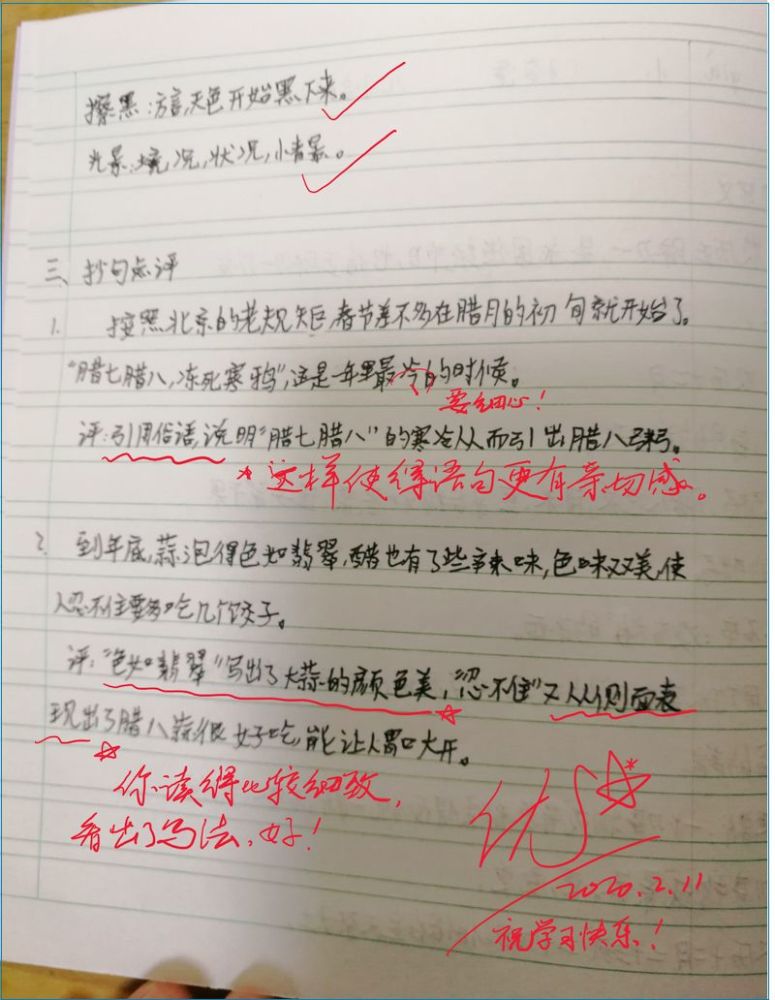 擦黑:方言,天色开始黑下来。
光景:境况,状况,情景。
三、抄句点评
1. 按照北京的老规矩,春节差不多在腊月的初旬就开始了。
“腊七腊八,冻死寒鸦”,这是一年里最冷的时候。
要细心!
评:引用俗话,说明“腊七腊八”的寒冷从而引出腊八粥。
*这样使得语句更有亲切感。
2. 到年底,蒜泡得色如翡翠,醋也有了些辣味,色味双美,使
人忍不住要多吃几个饺子。
评:“色如翡翠”写出了大蒜的颜色美,“忍不住”又从侧面表
现出了腊八蒜很好吃,能让人胃口大开。
你读得比较细致,
看出了写法,好!
优
2020.2.11
祝学习快乐!